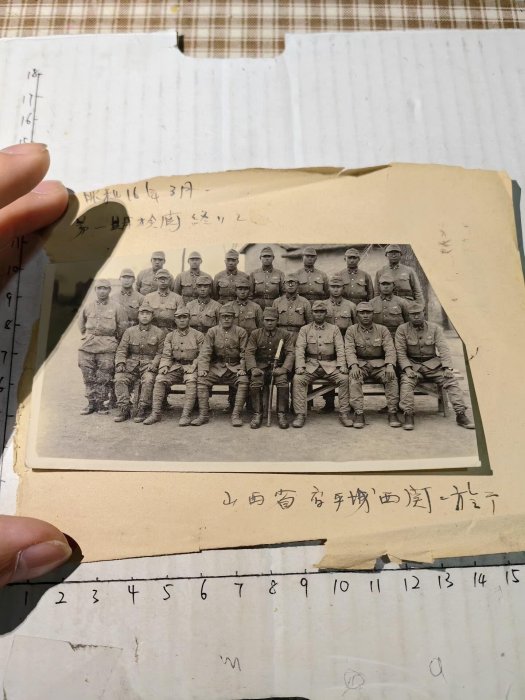 昭和16年3月
第一期検閲終リテ
山西省安平城西関ニ於テ
18
17
16
15
10
9
8
7
1 2 3 4 5 6 7 8 9 10 11 12 13 14 15